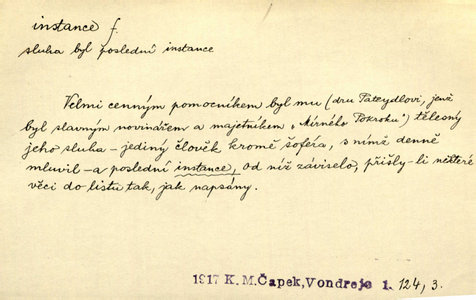 instance f.
sluha byl poslední instance
Velmi cenným pomocníkem byl mu (dru Pateydlovi, jenž
byl slavným novinářem a majetníkem „Mírného Pokroku") tělesný
jeho sluha – jediný člověk kromě šoféra, s nímž denně
mluvil – a poslední instance, od níž záviselo, přišly-li některé
věci do listu tak, jak napsány.
1917 K.M.Čapek,Vondrejc 1. 124, 3.